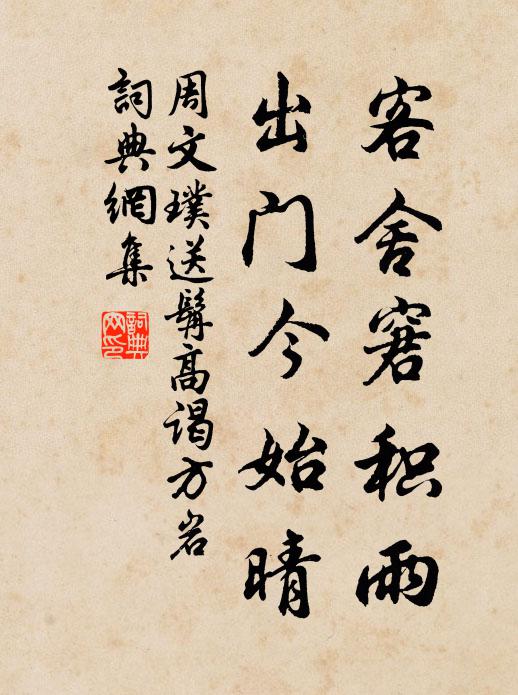 客舍窘积雨
出门今始晴
周文璞送髯高谒方岩
詞典網集
詞典
网印